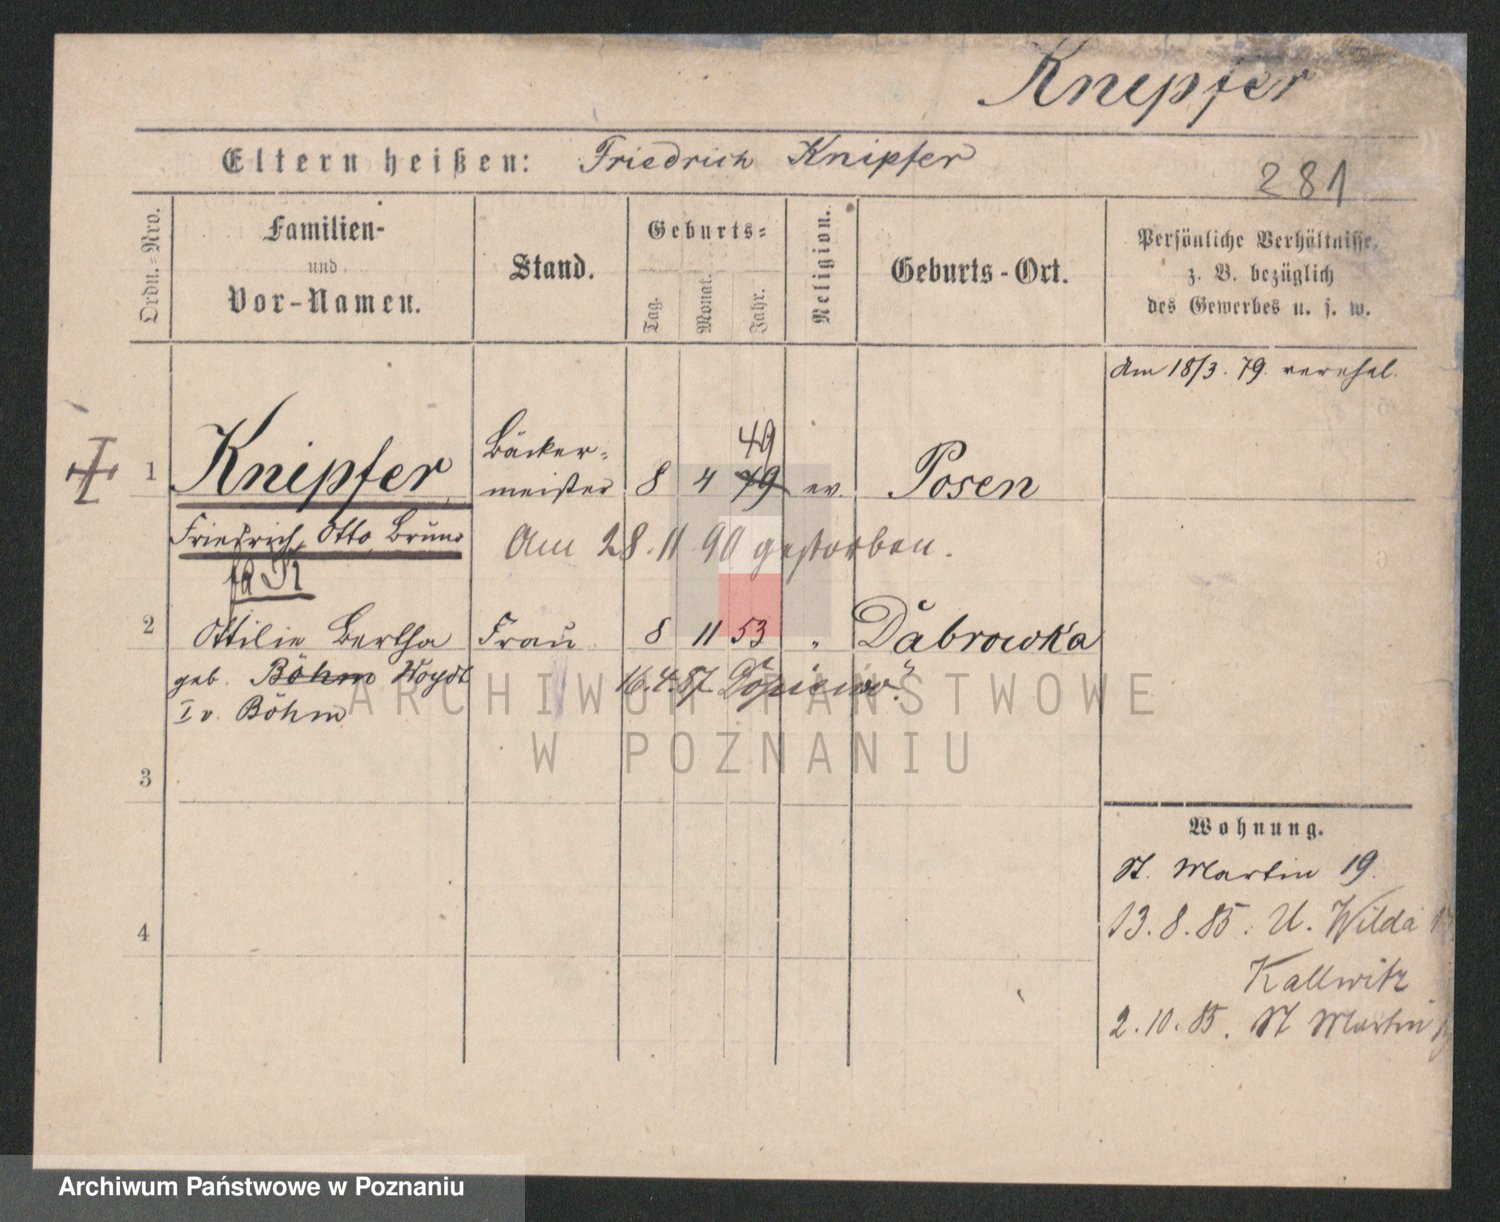 Knipfer
Eltern heißen: Friedrich Knipfer
281
Ordn.=Nro.
Familien-
und
Vor-Namen.
Stand.
Geburts=
Tag.
Monat.
Jahr.
Religion.
Geburts-Ort.
Persönliche Verhältnisse,
z. B. bezüglich
des Gewerbes u. s. w.
Am 18/3. 79. verehel.
49
1 Knipfer Bäcker=
meister 8 4 79 ev. Posen
Friedrich Otto Bruno
Am 28.11 90 gestorben.
2 Ottilie Bertha Frau 8 11 53 " Dabrowka
geb. Böhm Woydt 16.4.87
I v. Böhm
ARCHIWUM PAŃSTWOWE
W POZNANIU
3
4
Wohnung.
St. Martin 19.
13.8.85. U. Wilda
Kallwitz
2.10.85. St Martin
Archiwum Państwowe w Poznaniu